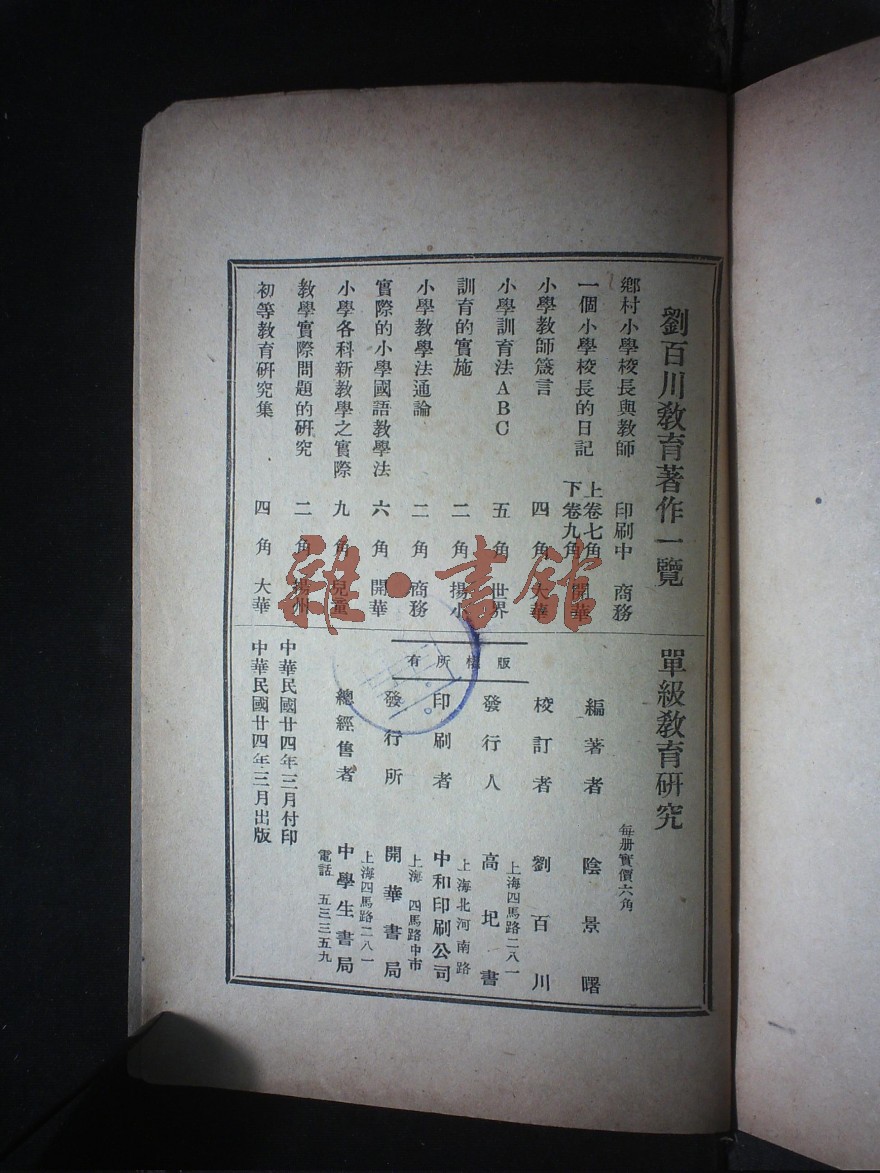 劉百川敎育著作一覽
鄉村小學校長與教師 印刷中 商務
一個小學校長的日記 上卷七角 下卷九角 開華
小學教師箴言 四角 大華
小學訓育法ABC 五角 世界
訓育的實施 二角 揚小
小學教學法通論 二角 商務
實際的小學國語教學法 六角 開華
小學各科新教學之實際 九角 兒童
教學實際問題的研究 二角 揚州
初等教育研究集 四角 大華
單級敎育研究
每册實價六角
編著者 陰景曙
校訂者 劉百川
上海四馬路二八一
發行人 高圯書
上海北河南路
印刷者 中和印刷公司
上海 四馬路中市
發行所 開華書局
上海四馬路二八一
總經售者 中學生書局
電話 五三三五九
版權所有
中華民國廿四年三月付印
中華民國廿四年三月出版
雜·書館